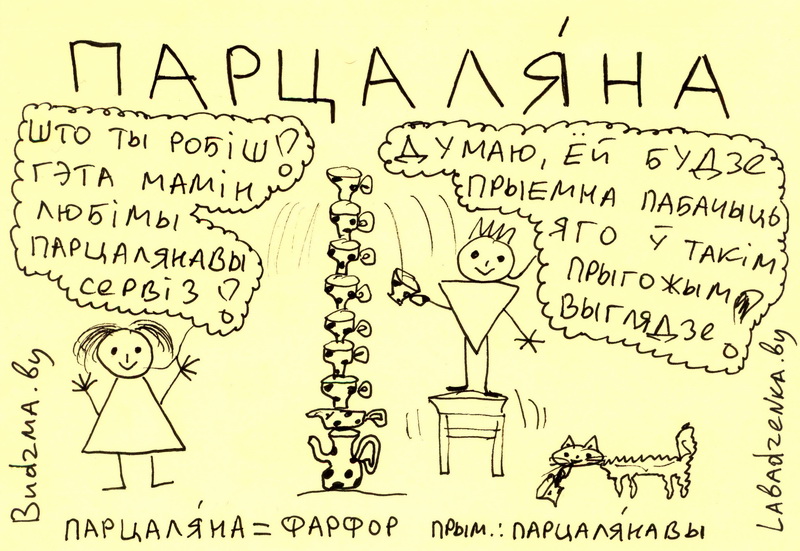 ПАРЦАЛЯ́НА
ШТО ТЫ РОБІШ!?
ГЭТА МАМІН
ЛЮБІМЫ
ПАРЦАЛЯНАВЫ
СЕРВІЗ!?
ДУМАЮ, ЁЙ БУДЗЕ
ПРЫЕМНА ПАБАЧЫЦЬ
ЯГО Ў ТАКІМ
ПРЫГОЖЫМ
ВЫГЛЯДЗЕ!
Budzma.by
Labadzenka.by
ПАРЦАЛЯ́НА = ФАРФОР ПРЫМ.: ПАРЦАЛЯ́НАВЫ